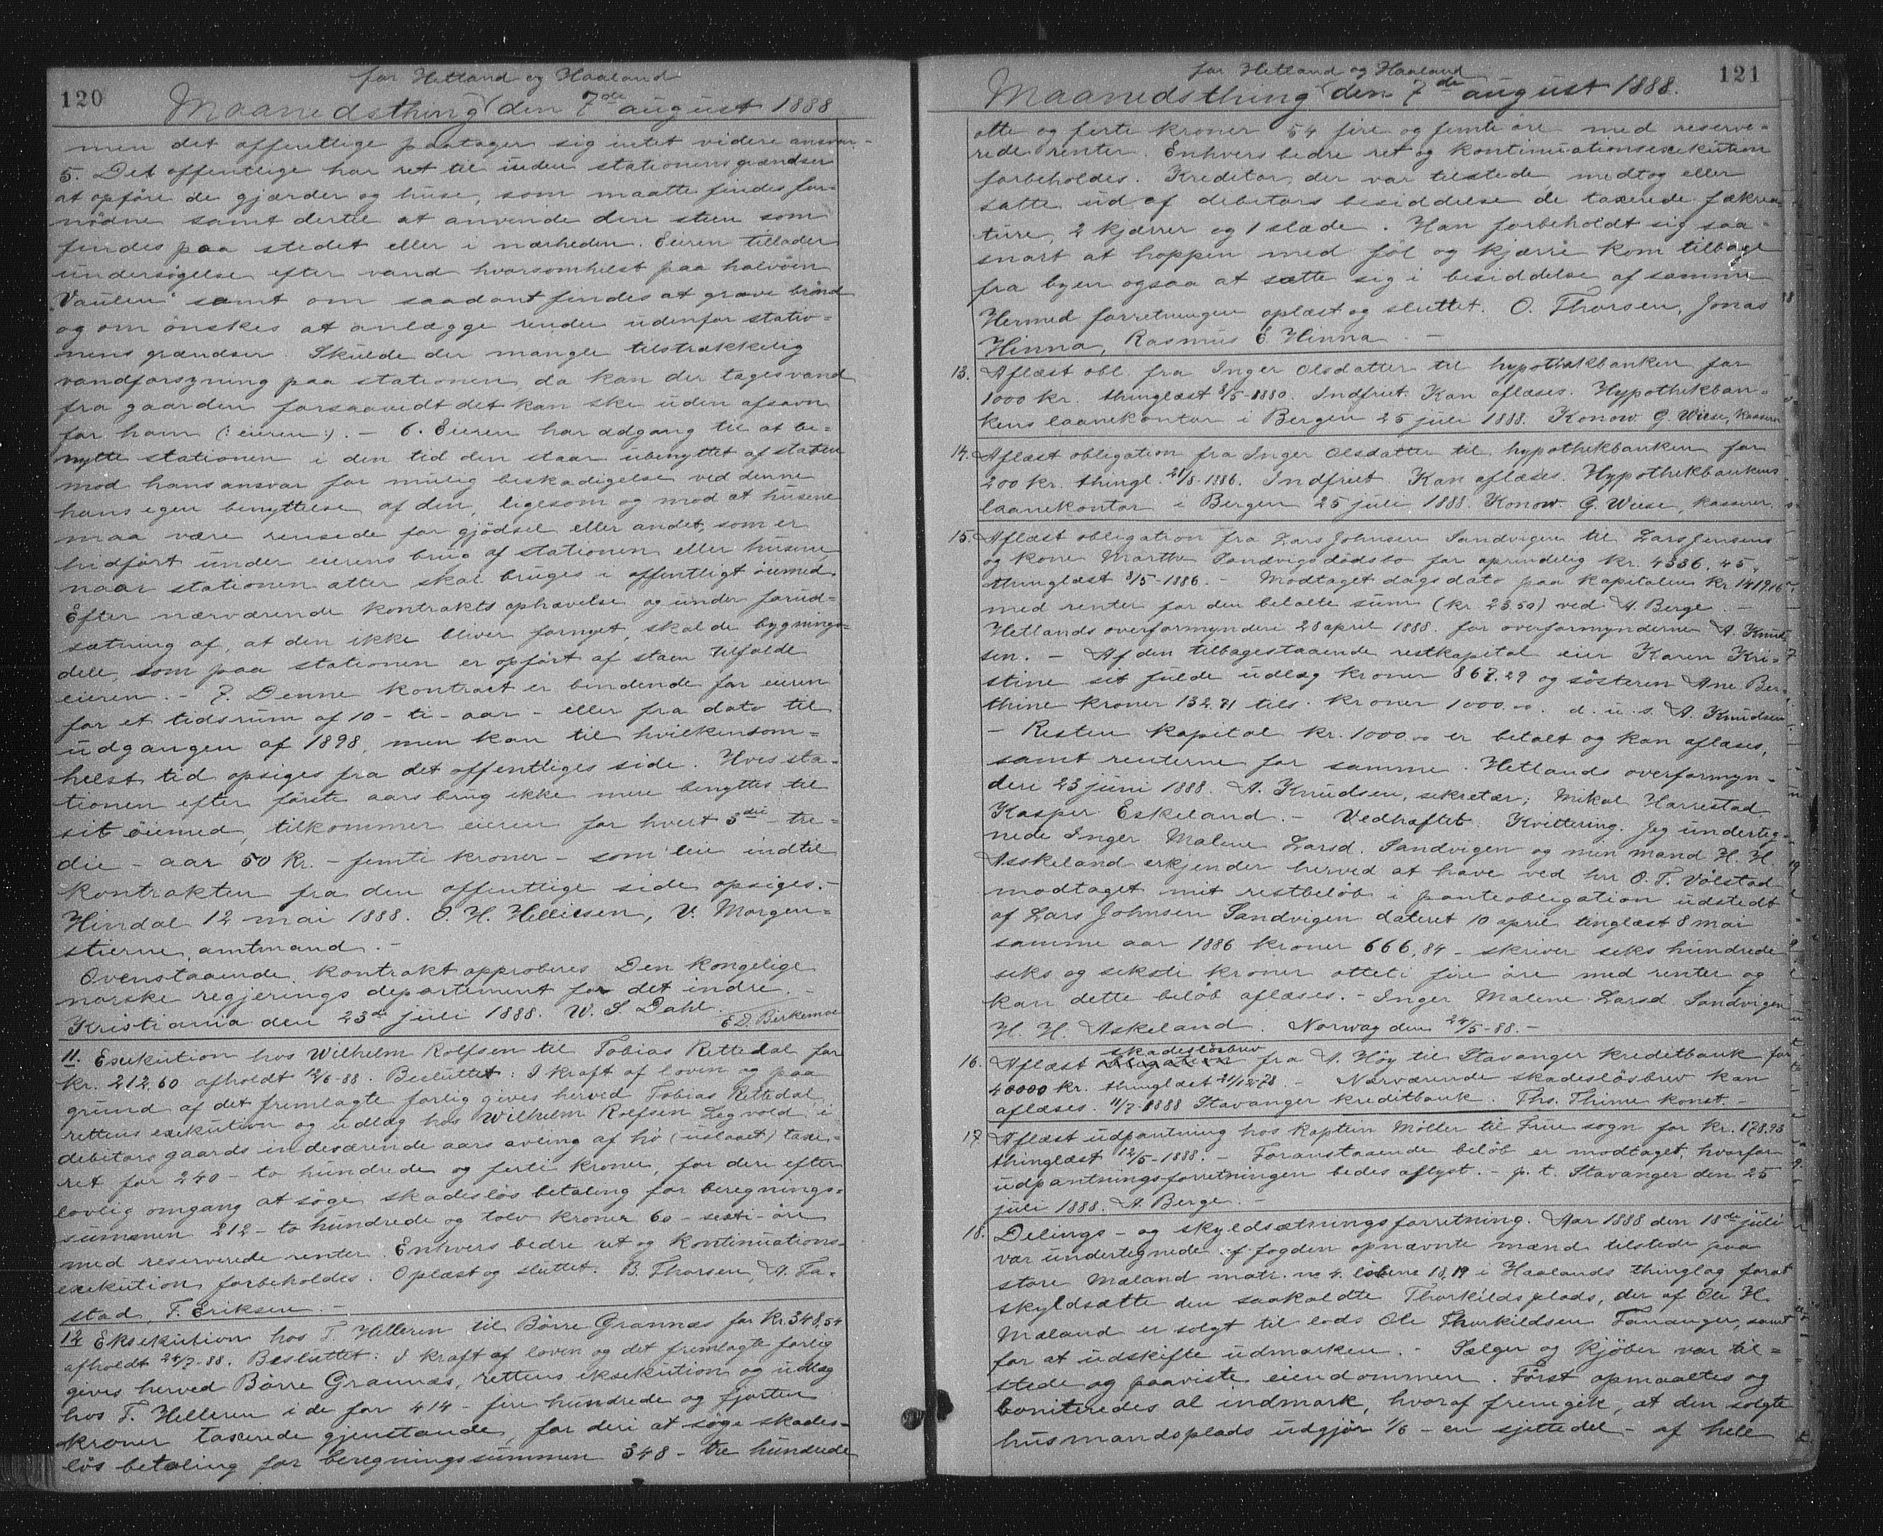 120
for Hetland og Haaland
Maanedsthing den 7de august 1888
men det offentlige paatager sig intet videre ansvar.
5. Det offentlige har ret til inden stationens grændser
at opføre de gjærder og huse, som maatte findes for-
nødne samt dertil at anvende den steen som
findes paa stedet eller i nærheden. Eieren tillader
undersøgelse efter vand hvorsomhelst paa halvøen
"Vaulen" samt om saadant findes at grave brønd
og om ønskes at anlægge render udenfor statio-
nens grændser. Skulde der mangle tilstrækkelig
vandforsyning paa stationen, da kan der tages vand
fra gaarden forsaavidt det kan ske uden afsavn
for ham (: eieren :). – 6. Eieren har adgang til at be-
nytte stationen i den tid den staar ubenyttet af staten
mod hans ansvar for mulig beskadigelse ved denne
hans egen benyttelse af den, ligesom og mod at husene
maa være rensede for gjødsel eller andet, som er
hidført under eierens brug af stationen eller husene
naar stationen atter skal bruges i offentligt øiemed.
Efter nærværende kontrakts ophævelse og under forud-
sætning af, at den ikke bliver fornyet, skal de bygnings-
dele, som paa stationen er opført af staten tilfalde
eieren. – 7. Denne kontract er bindende for eieren
for et tidsrum af 10 – ti – aar – eller fra dato til
udgangen af 1898, men kan til hvilkensom-
helst tid opsiges fra det offentliges side. Hvis sta-
tionen efter første aars brug ikke mere benyttes til
sit øiemed, tilkommer eieren for hvert 3die – tre-
die – aar 50 kr. – femti kroner – som leie indtil
kontrakten fra den offentlige side opsiges. –
Hindal 12 mai 1888. O. H. Helliesen, V. Morgen-
stierne, amtmand. –
Ovenstaaende kontrakt approberes. Den kongelige
norske regjerings departement for det indre. –
Kristiania den 23de juli 1888. W. S. Dahl.
E D. Birkemoe
11. Exekution hos Wilhelm Rolfsen til Tobias Rettedal for
kr. 212,60 afholdt 12/6-88. Besluttet: I kraft af loven og paa
grund af det fremlagte forlig gives herved Tobias Rettedal
rettens exekution og udlæg hos Wilhelm Rolfsen Legvold i
debitors gaards indeværende aars avling af hø (uslaaet) taxe-
ret for 240 – to hundrede og forti kroner, for deri efter
lovlig omgang at søge skadesløs betaling for beregnings-
summen 212 – to hundrede og tolv kroner 60 – sexti – øre
med reserverede renter. Enhvers bedre ret og kontinuations-
exekution forbeholdes. Oplæst og sluttet. B. Thorsen, A. Ta-
stad, T. Eriksen. –
12 Eksekution hos T. Helleren til Børre Grannæs for kr 348,54
afholdt 24/7-88. Besluttet: I kraft af loven og det fremlagte forlig
gives herved Børre Grannæs, rettens eksekution og udlæg
hos T. Helleren i de for 414 – fire hundrede og fjorten
kroner taxerede gjenstande, for deri at søge skades-
løs betaling for beregningssummen 348 – tre hundrede
121
for Hetland og Haaland
Maanedsthing den 7de august 1888.
otte og førte kroner 54 fire og femti øre med reserve-
rede renter. Enhvers bedre ret og kontinuationsexekution
forbeholdes. Kreditor, der var tilstede, medtog eller
satte ud af debitors besiddelse de taxerede fækrea-
ture, 2 kjærrer og 1 slæde. Han forbeholdt sig saa-
snart at hoppen med føl og kjærre kom tilbage
fra byen ogsaa at sætte sig i besiddelse af samme
Hermed forretningen oplæst og sluttet. O. Thorsen, Jonas
Hinna, Rasmus E Hinna. –
13. Aflæst obl. fra Inger Olsdatter til hypothekbanken for
1000 kr. thinglæst 3/5-1880. Indfriet. Kan aflæses. Hypothekban-
kens laanekontor i Bergen 25 juli 1888. Konow. G. Wiese, kasserer
14. Aflæst obligation fra Inger Olsdatter til hypothekbanken for
200 kr. thingl. 21/8-1886. Indfriet. Kan aflæses. Hypothekbankens
laanekontor i Bergen 25 juli 1888. Konow. G. Wiese, kasserer
15. Aflæst obligation fra Lars Johnsen Sandvigen til Lars Jensens
og kone Marthe Sandvigs dødsbo for oprindelig kr. 4336,45.
thinglæst 8/5-1886. – Modtaget dags dato paa kapitalen kr 1419,16
med renter for den betalte sum (kr 23,50) ved A. Berge. –
Hetlands overformynderi 28 april 1888. for overformynderne A. Knud-
sen. – Af den tilbagestaaende restkapital eier Karen Kri-
stine sit fulde udlæg kroner 867.29 og søsteren Ane Ber-
thine kroner 132.71 tils. kroner 1000.00. d. u. s. A. Knudsen
– Resten kapital kr. 1000.00 er betalt og kan aflæses,
samt renterne for samme. Hetlands overformyn-
deri 23 juni 1888. A. Knudsen, sekretær; Mikal Harrestad
Kasper Eskeland. – Vedhæftet Kvittering. Jeg underteg-
nede Inger Malene Larsd. Sandvigen og min mand H. H.
Asskeland erkjender herved at have ved hr. O. T. Vølstad
modtaget mit restbeløb i panteobligation udstedt
af Lars Johnsen Sandvigen dateret 10 april tinglæst 8 mai
samme aar 1886 kroner 666,84 – skriver seks hundrede
seks og seksti kroner otteti fire øre med renter og
kan dette beløb aflæses. – Inger Malene Larsd. Sandvigen
H. H. Askeland. Norway den 24/5-88. –
16. Aflæst skadesløsbrev fra A. Høy til Stavanger kreditbank for
40000 kr. thinglæst 21/12-78. – Nærværende skadesløsbrev kan
aflæses. 11/7-1888 Stavanger kreditbank. Ths. Thime konst. –
17. Aflæst udpantning hos kaptein Møller til Frue sogn for kr. 178.93
thinglæst 12/5-1888. – Foranstaaende beløb er modtaget, hvorfor
udpantningsforretningen bedes aflyst. – p. t. Stavanger den 25
juli 1888. A. Berge. –
18. Delings- og skyldsætningsforretning. Aar 1888 den 18de juli
var undertegnede af fogden opnævnte mænd tilstede paa
store Mæland matr. no 4. løbene 18, 19 i Haalands thinglag forat
skyldsætte den saakaldte Thorkildsplads, der af Ole H.
Mæland er solgt til lods Ole Thorkildsen Tananger, samt
for at udskifte udmarken. – Sælger og kjøber var til-
stede og paaviste eiendommen. Først opmaaltes og
boniteredes al indmark, hvoraf fremgik, at den solgte
husmandsplads udgjør 1/6 – en sjettedel – af hele